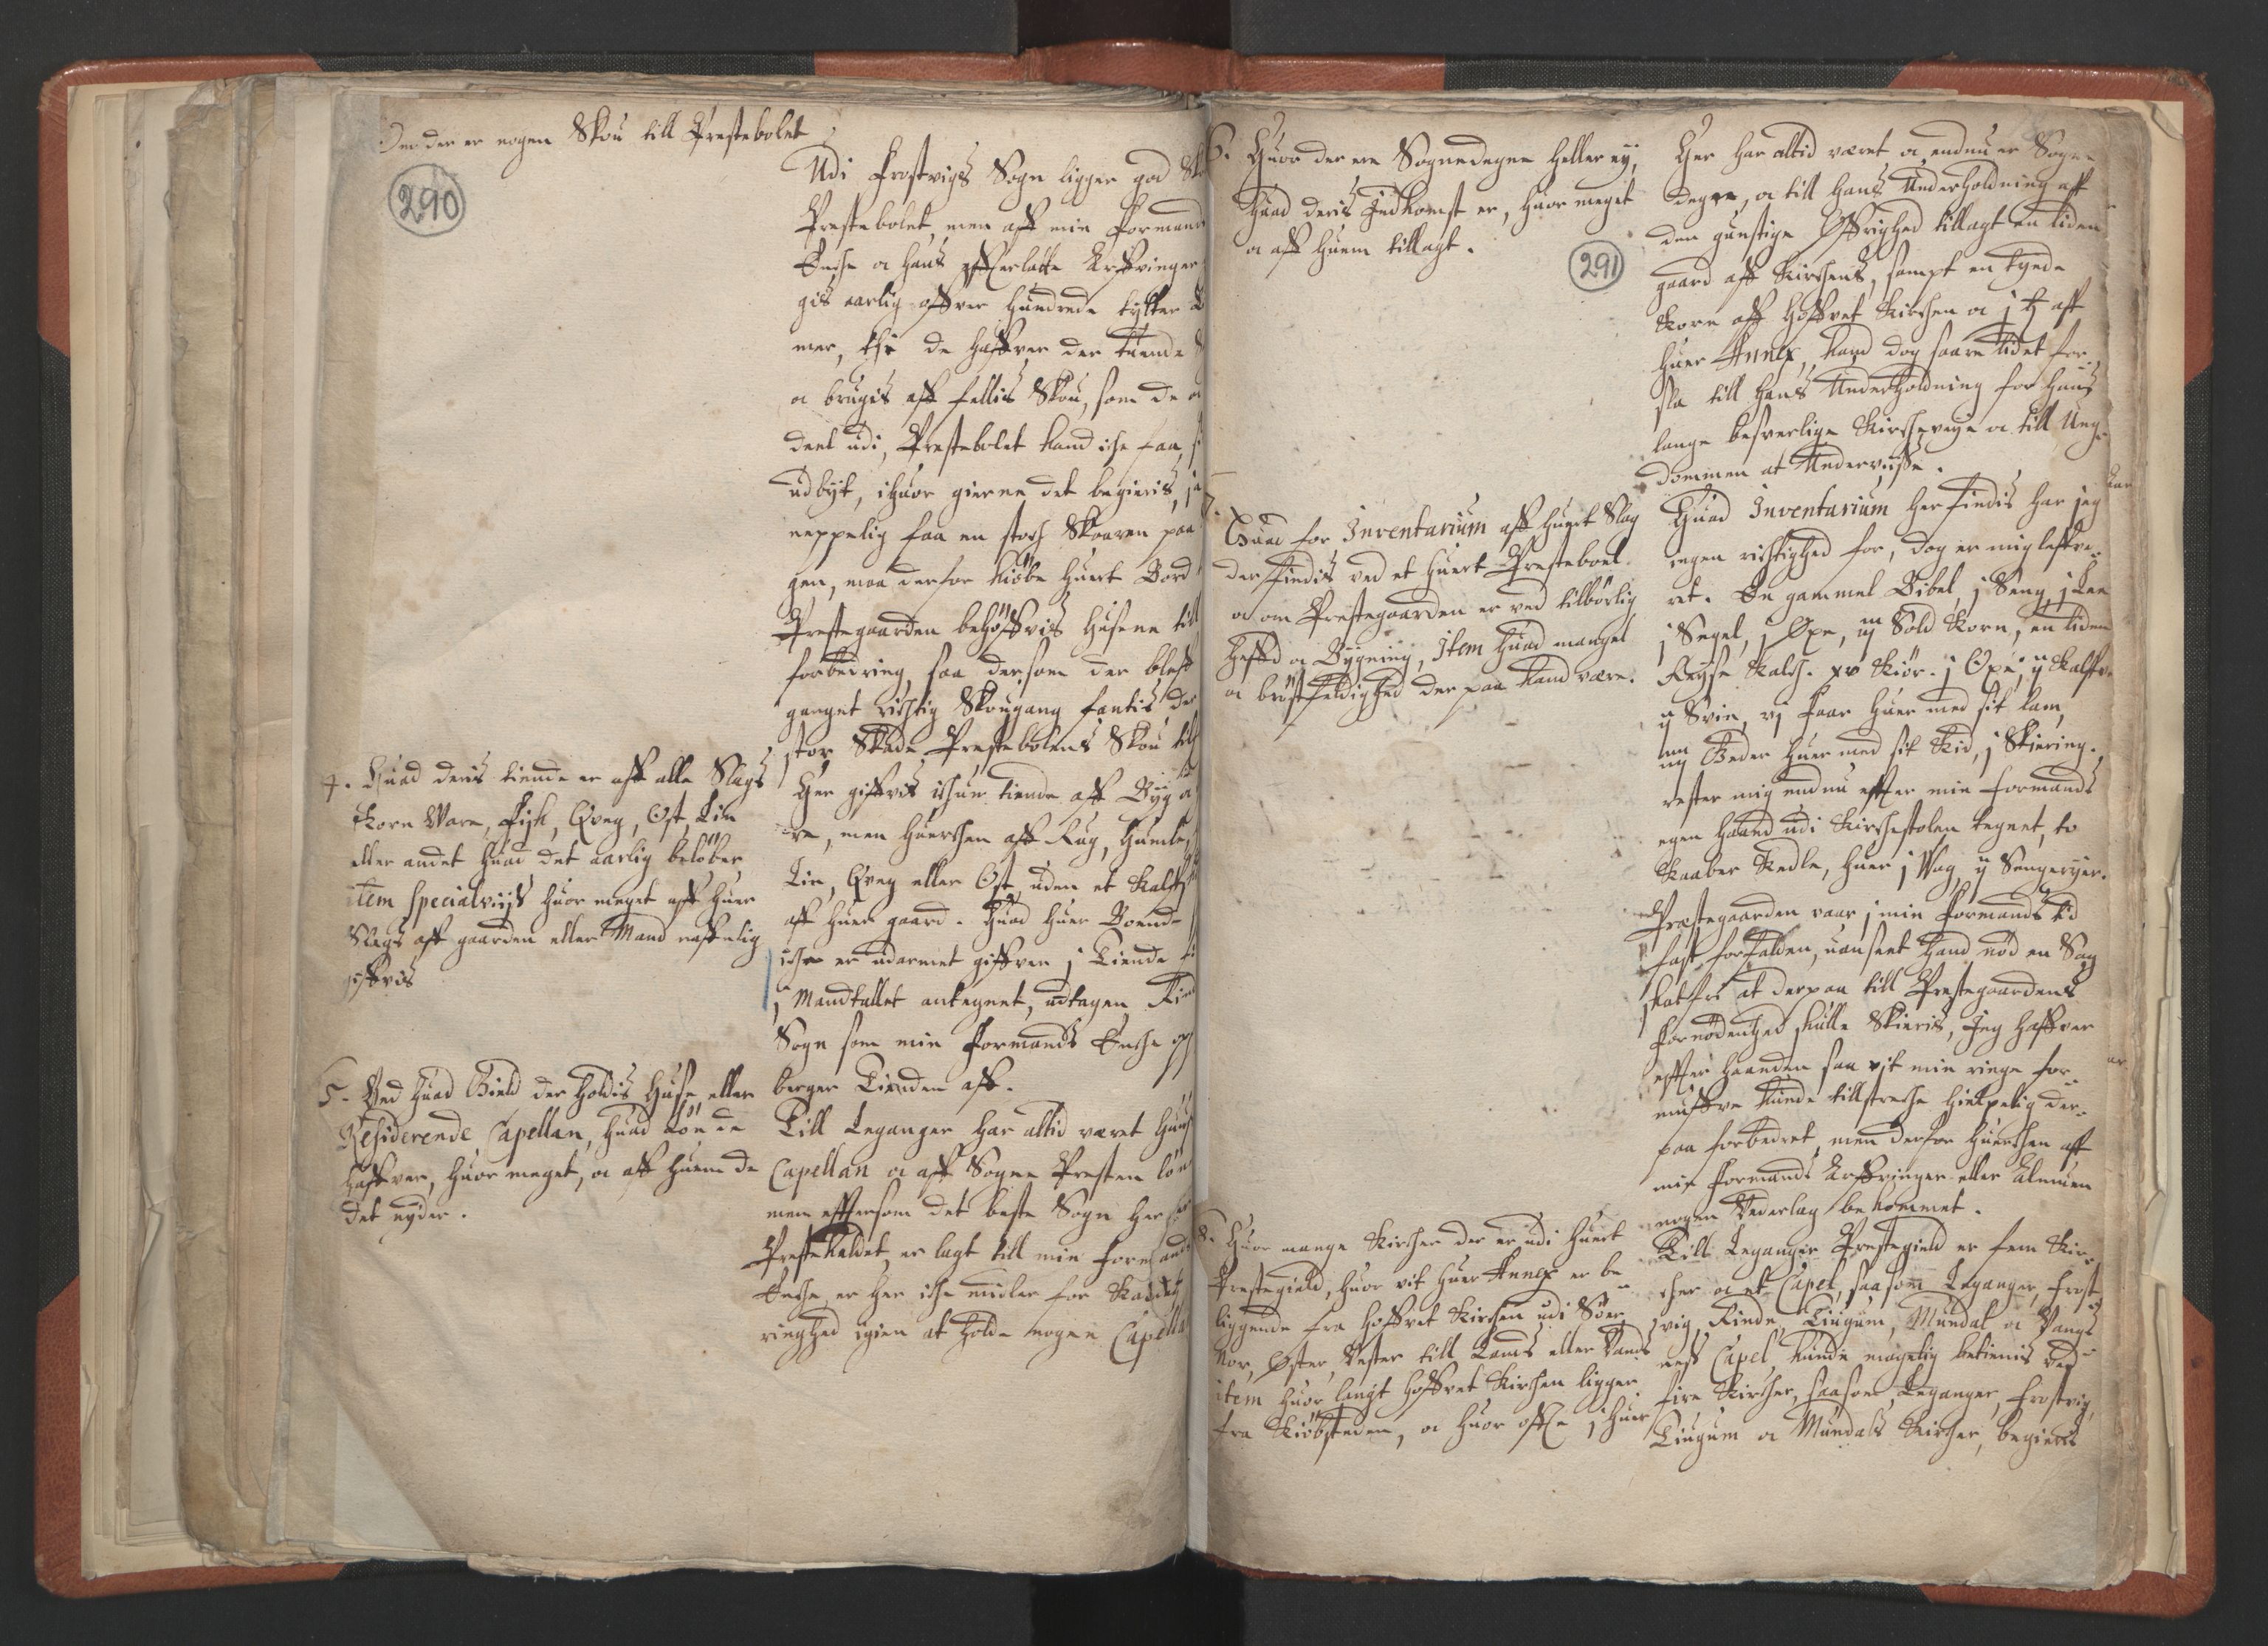 Om der er nogen Skou till Prestebolet
290
Udi Frostvigs Sogn ligger god
Prestebolet, men aff min Formands
Encke oc hans effterlatte Arffvinger
gis aarlig offver hundrede tylter
mer, thi de haffver der tuende
oc brugis aff fellis Skou, som de
deel udi, Prestebolet kand iche faa
udbyt, ihuor gierne det begieris,
neppelig faa en stoch Skaaren paa
gen, maa derfor kiøbe huert Bord
Prestegaarden behøffvis husene till
forbedring, saa dersom der bleff
ganget richtig Skougang fantis der
stor Skade Prestebolens Skou
4. Huad deris tiende er aff alle Slags
Korn Vare, Fisk, Qveg, Ost, Lin
eller andet huad det aarlig beløber
item specialviis huor meget aff huer
Slags aff gaarden eller Mand
giffvis
Her giffvis ichun tiende aff Byg
re, men huerchen aff Rug, Humle,
Lin, Qveg eller Ost, uden et Kalffs
aff huer gaard. Huad huer Bonde
iche er udarmet giffver i Tiende
i Mandtallet antegnet, udtagen
Sogn som min Formands Encke
berger Tienden aff.
5. Ved huad Gield der holdis Huse eller
Residerende Capellan, huad løn de
haffver, huor meget, oc aff huem de
det nyder.
Till Leganger har altid været Huus
Capellan oc aff Sogne Presten
men effter som det beste Sogn her
Prestekaldet, er lagt till min Formands
Encke, er her iche midler for Kaldets
ringhed igien at holde nogen Capellan
6. Huor der ere Sognedegne heller ey,
huad deris Indkomst er, huor meget
oc aff huem tillagt.
291
Her har altid været oc endnu er Sogne
degne, oc till hans Underholdning aff
den gunstige Øffrighed tillagt en liden
gaard aff Kirchens, sampt en tynde
Korn aff Hoffvet Kirchen oc j aff
huer Annex, kand dog saare lidet for
sla till hans Underholdning for hans
lange besverlige Kircheveye oc till Ung
dommen at Undervisse.
7.
Huad for Inventarium aff huert Slag
der findis ved et huert Presteboel
oc om Prestegaarden er ved tilbørlig
Heffd oc Bygning, Item huad mangel
oc brøstfeldighed der paa kand være.
Huad Inventarium her findis har jeg
ingen richtighed for, dog er mig leffve
ret. En gammel Bibel, j Seng, j Lee
j Segel, j Øxe, iij Sold Korn, en liden
Reyse Kalch. xv Kiør. j Oxe, ij Kalffve
ij Svin, vj Faar huer med sit lam,
iiij Geder huer med sit Kid, j Skiering.
rester mig endnu effter min Formands
egen Haand udi Kirchestolen tegnet, to
Kaaber Kedle, huer j Vog, ij Sengeryer.
Prestegaarden vaar j min Formands tid
fast forfalden, uanseet hand nød en Sag
skatfri at derpaa till Prestegaardens
fornødenhed skulle Skieris, Jeg haffver
effter haanden saa vit min ringe for
muffve kunde tillstrecke hielpelig der
paa forbedret, men derfor huerchen aff
min Formands Arffvinger eller Almuen
nogen Vederlag bekommet.
8. Huor mange Kircher der er udi huert
Prestegield, huor vit huer Annex er be
liggende fra Hoffvet Kirchen udi Søer
Nor, Øster, Vester till Lands eller Vands
item huor langt Hoffvet Kirchen ligger
fra Kiøbsteden, oc huor offte j huer
Till Leganger Prestegield er fem Kir
cher oc et Capel, saasom Leganger, Frost
vig, Rinde, Tiugum, Mundal oc Vangs
ness Capel, kunde magelig betienis ved
fire Kircher, saasom Leganger, Frostvig,
Tiugum oc Mundals Kircher, begieris